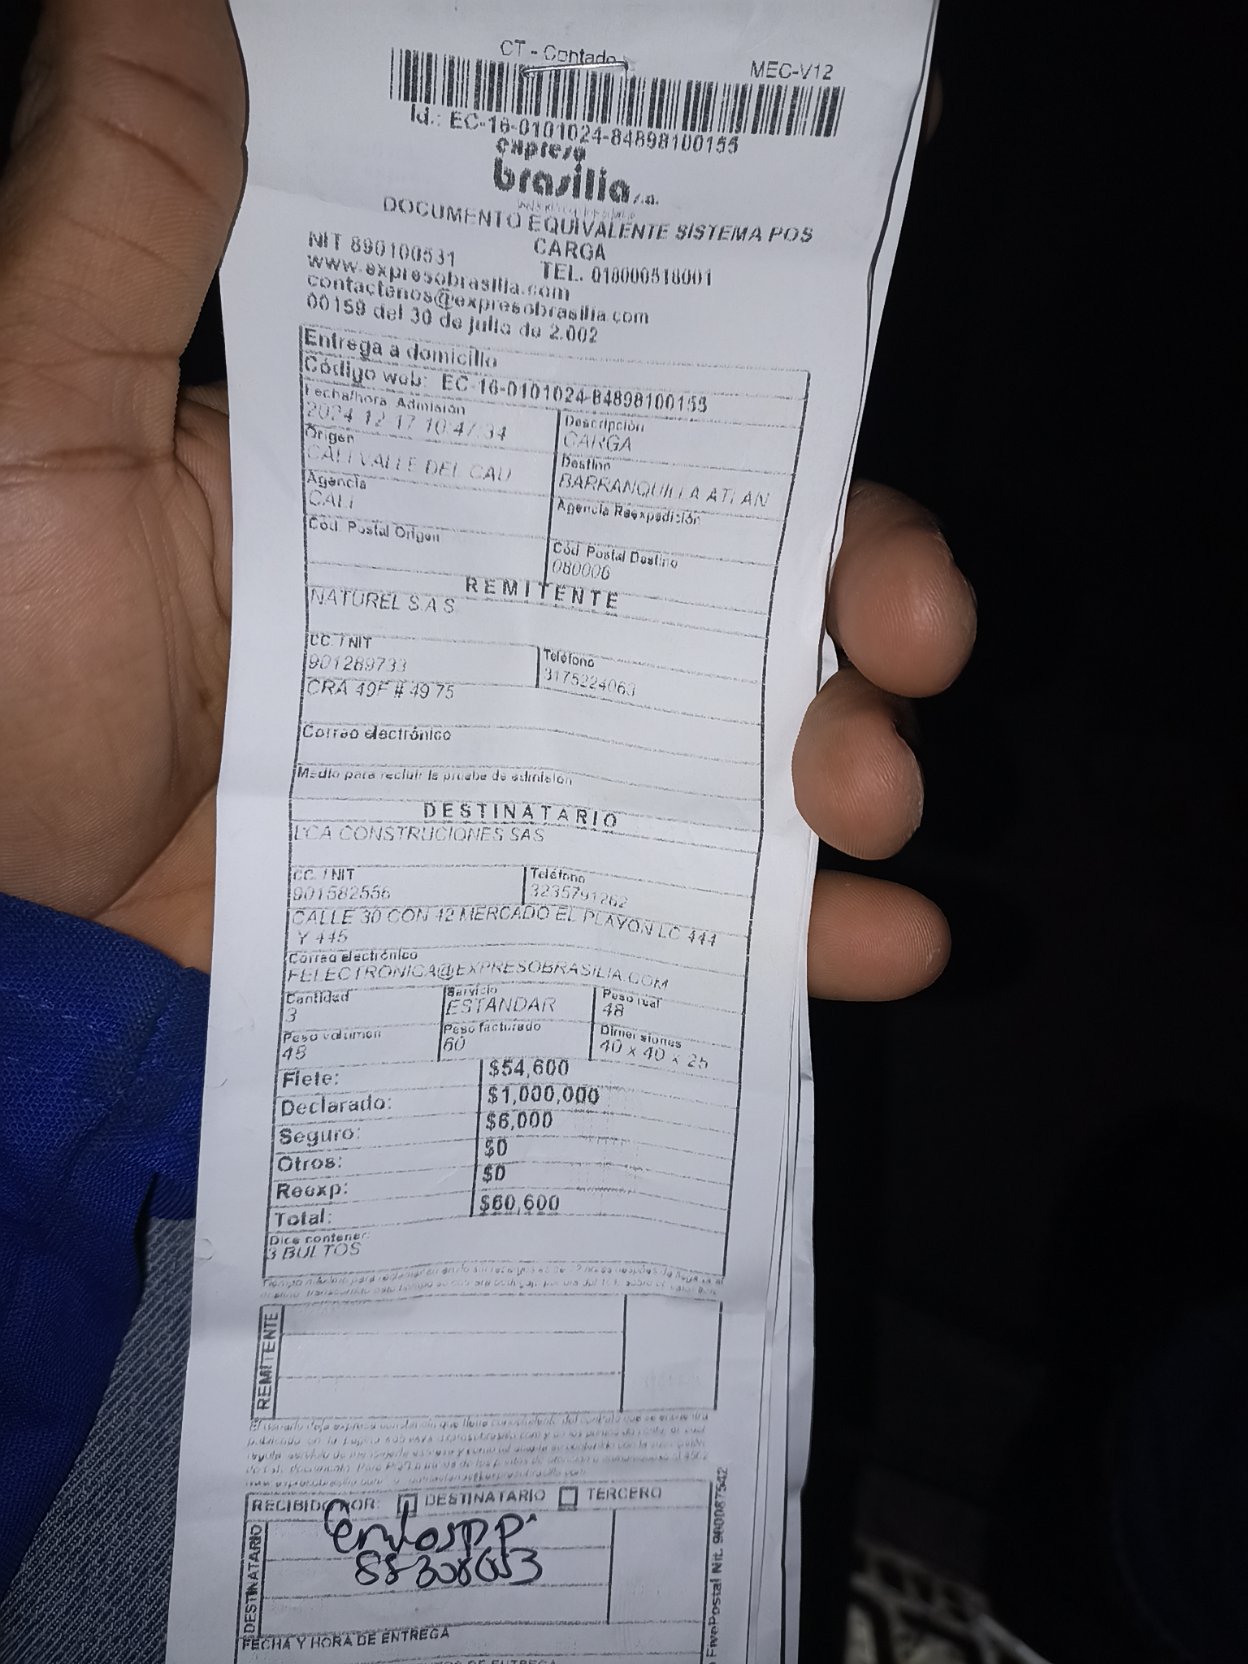 CT - Contado
MEC-V12
Id.: EC-16-0101024-84898100155
expreso
brasilia s.a.
DOCUMENTO EQUIVALENTE SISTEMA POS
CARGA
NIT 890100531
TEL. 018000518001
www.expresobrasilia.com
contactenos@expresobrasilia.com
00159 del 30 de julio de 2.002
Entrega a domicilio
Código web: EC-16-0101024-84898100155
Fecha/hora Admisión
2024-12-17 10:47:34
Descripción
CARGA
Origen
CALI VALLE DEL CAU
Destino
BARRANQUILLA ATLAN
Agencia
CALI
Agencia Reexpedición
Cód. Postal Origen
Cód. Postal Destino
080006
REMITENTE
NATUREL S.A.S
CC. / NIT
901289733
Teléfono
3175224063
CRA 49F # 49 75
Correo electrónico
Medio para recibir la prueba de admisión
DESTINATARIO
LCA CONSTRUCIONES SAS
CC. / NIT
901582556
Teléfono
3235791262
CALLE 30 CON 42 MERCADO EL PLAYON LC 444
Y 445
Correo electrónico
FELECTRONICA@EXPRESOBRASILIA.COM
Cantidad
3
Servicio
ESTANDAR
Peso real
48
Peso volumen
48
Peso facturado
60
Dimensiones
40 x 40 x 25
Flete: $54,600
Declarado: $1,000,000
Seguro: $6,000
Otros: $0
Reexp: $0
Total: $60,600
Dice contener:
3 BULTOS
REMITENTE
RECIBIDO POR: DESTINATARIO TERCERO
DESTINATARIO
FECHA Y HORA DE ENTREGA
FivePostal Nit. 9800087542